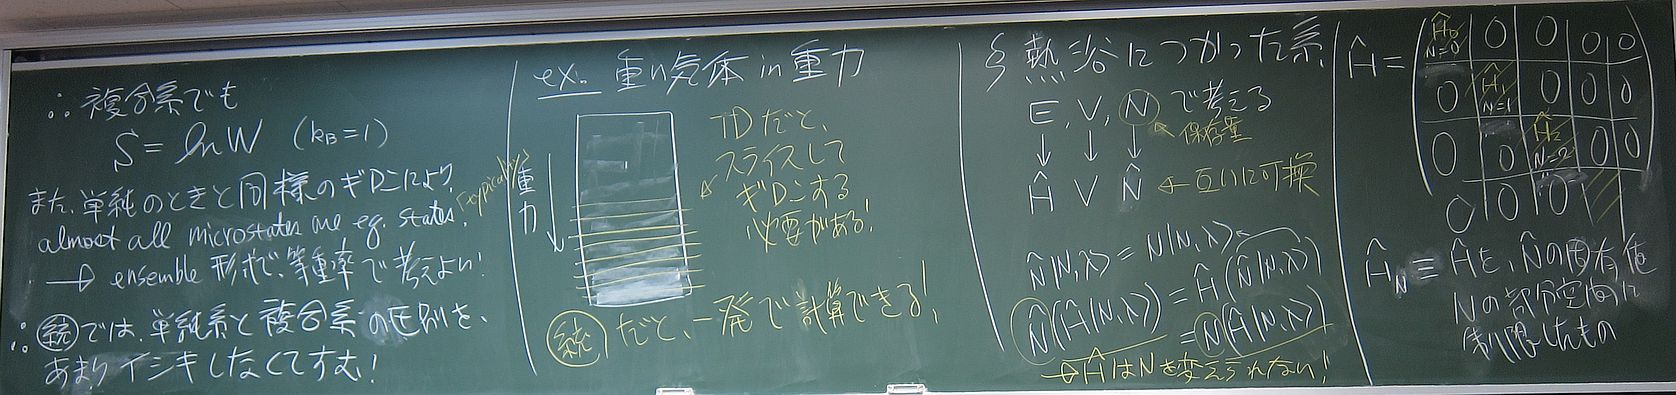 ∴ 複合系でも
S = ln W (k_B = 1)
また、単純のときと同様のギロンにより、
almost all microstates are eq. states. (typicality)
→ ensemble 形式で、等重率で考えよい!
∴ ㊕統 では、単純系と複合系の区別を、
あまりイシキしなくてすむ!
ex. 重い気体 in 重力
重力
TDだと、
スライスして
ギロンする
必要がある!
統 だと、一発で計算できる!
§ 熱浴につかった系
E, V, N で考える
保存量
↓ ↓ ↓
Ĥ V N̂ ← 互いに可換
N̂|N,λ⟩ = N|N,λ⟩
N̂(Ĥ|N,λ⟩) = Ĥ(N̂|N,λ⟩)
= N(Ĥ|N,λ⟩)
→ ĤはNを変えられない!
Ĥ =
Ĥ₀ N=0 0 0 0 0
0 Ĥ₁ N=1 0 0 0
0 0 Ĥ₂ N=2 0 0
0 0 0
Ĥ_N ≡ Ĥを、N̂の固有値
Nの部分空間に
制限したもの